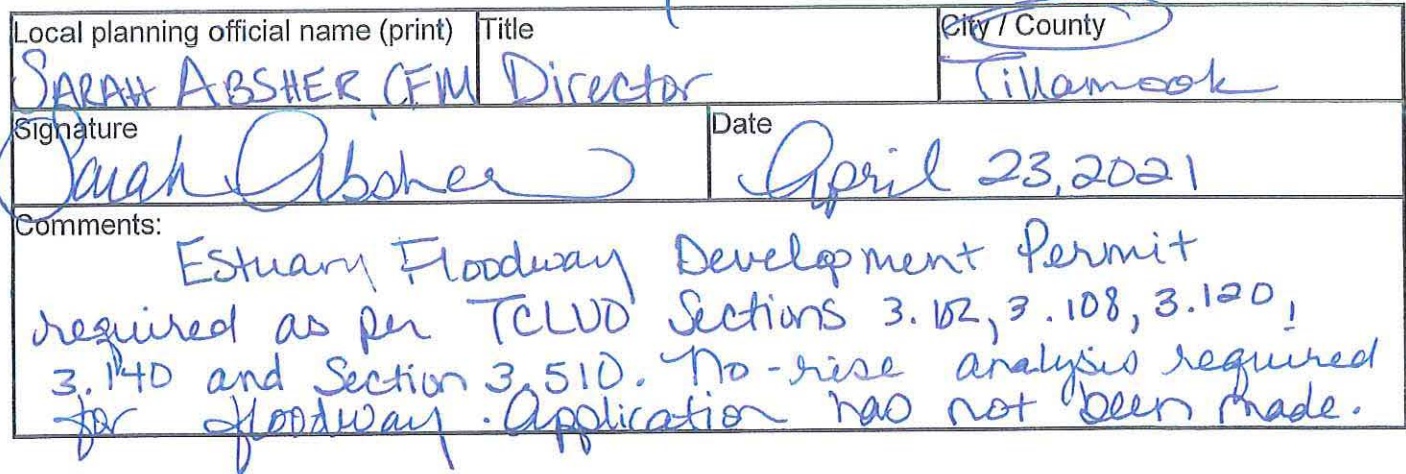 Local planning official name (print) Title City / County
SARAH ABSHER CFM Director Tillamook
Signature Date
Sarah Absher April 23, 2021
Comments:
Estuary Floodway Development Permit
required as per TCLUO Sections 3.102, 3.108, 3.120,
3.140 and Section 3.510. No-rise analysis required
for floodway. Application has not been made.